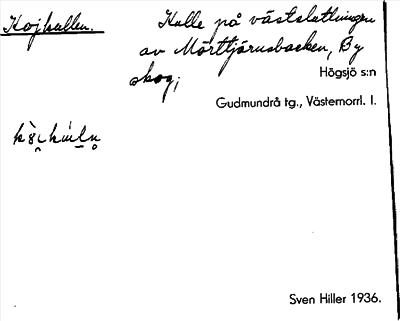 Kojkullen.
Kulle på västsluttningen
av Mörttjärnsbacken, By
skog;
Högsjö s:n
Gudmundrå tg., Västernorrl. l.
Sven Hiller 1936.